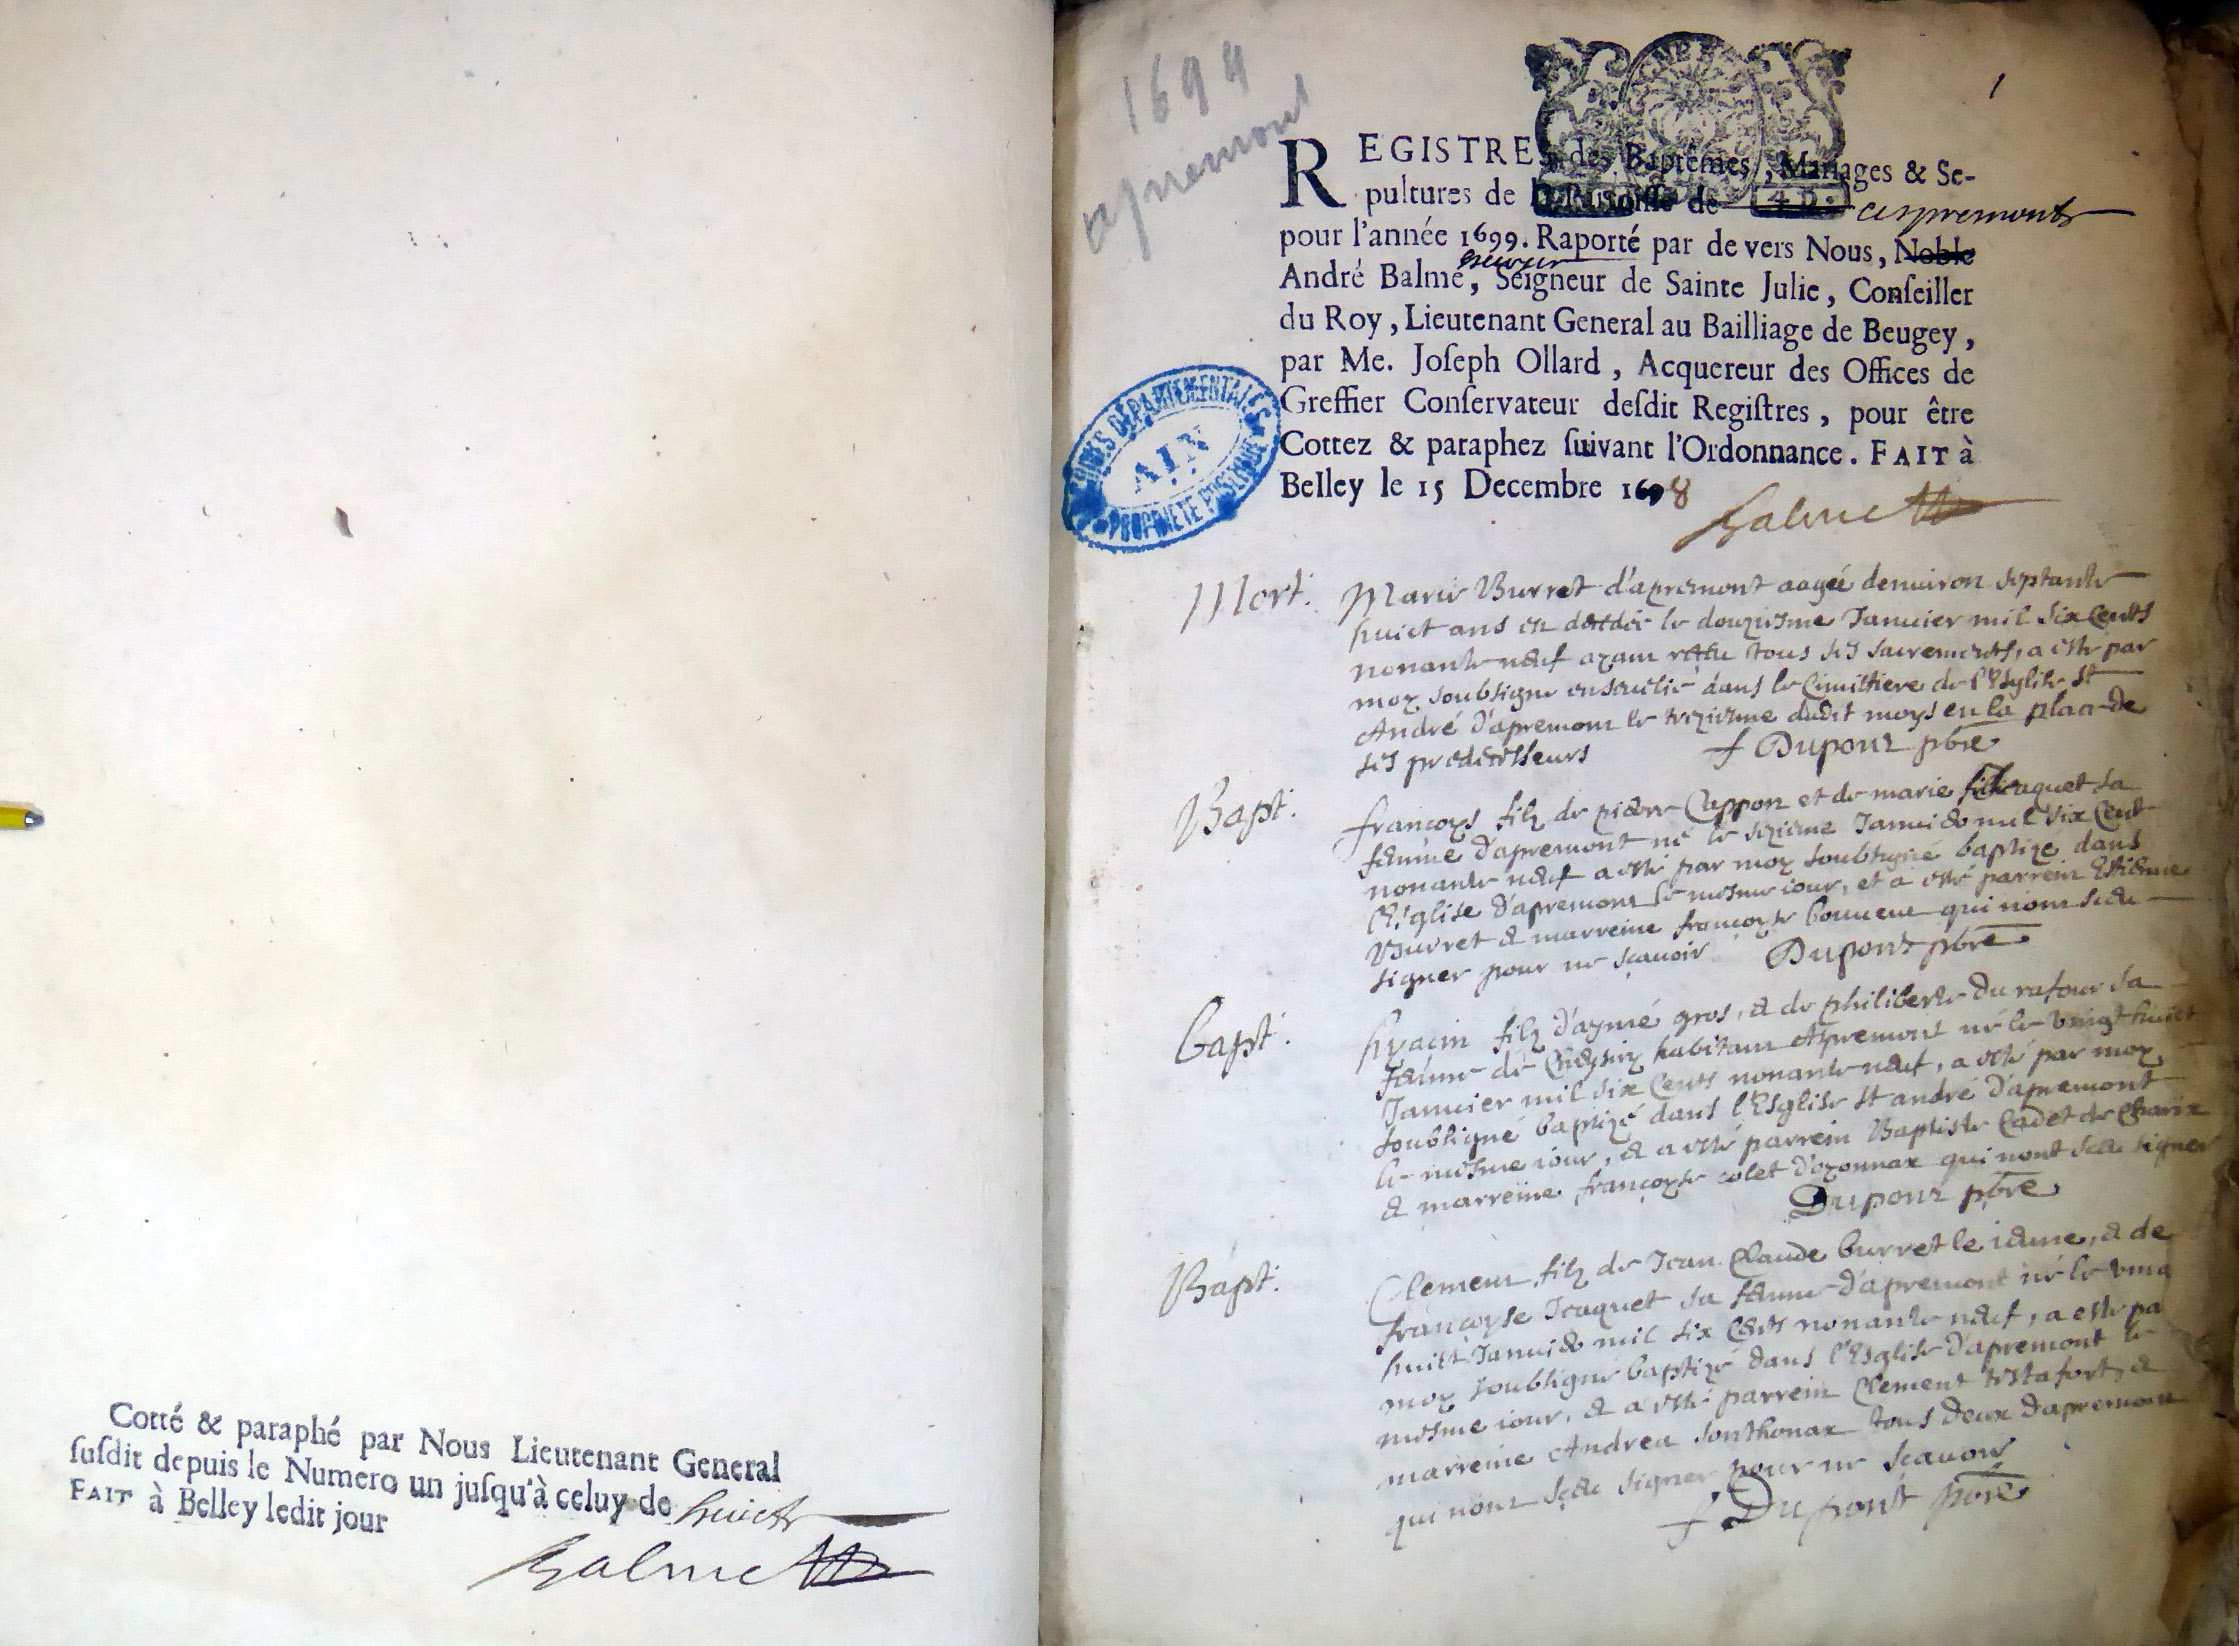 Cotté & paraphé par Nous Lieutenant General
ſuſdit depuis le Numero un juſqu'à celuy de huict
FAIT à Belley ledit jour
Balme
1699
apremont
1
REGISTRES des Baptêmes, Mariages & Se-
pultures de la Paroisse de aspremont
pour l'année 1699. Raporté par de vers Nous, Noble
André Balme, Seigneur de Sainte Julie, Conſeiller
du Roy, Lieutenant General au Bailliage de Beugey,
par Me. Joſeph Ollard, Acquereur des Offices de
Greffier Conſervateur deſdit Regiſtres, pour être
Cottez & paraphez ſuivant l'Ordonnance. FAIT à
Belley le 15 Decembre 1698
Balme
ARCHIVES DÉPARTEMENTALES
AIN
PROPRIÉTÉ PUBLIQUE
Mort. Marie Burret d'apremont aagée denuiron septante
huict ans est decedée le douziesme Januier mil six Cents
nonante neuf ayant receu tous ses sacrements, a esté par
moy soubsigné enseuelie dans le Cimistiere de l'Esglise St
André d'apremont le treziesme dudit moys en la place de
ses predecesseurs Dupont pbre
Bapt. françoys filz de pierre Cappon et de marie Jcaquet sa
femme d'apremont né le sezieme Januier mil six Cent
nonante neuf a esté par moy soubsigné baptize dans
l'Esglise d'apremont le mesme iour, et a esté parrein Estienne
Burret & marreine françoyse qui nont sceu
signer pour ne sçauoir Dupont pbre
Bapt. hyacin filz d'aymé gros, & de philiberte du rafour sa
femme de habitant Apremont né le vingt huict
Januier mil six Cents nonante neuf, a esté par moy
soubsigné baptizé dans l'Esglise St andré d'apremont
le mesme iour, & a esté parrein Baptiste Cadet de Charix
& marreine françoyse colet d'oyonnax qui nont sceu signer
Dupont pbre
Bapt. Clement filz de Jean Claude burret le ieune, & de
françoyse Jcaquet sa femme d'apremont né le vint
huict Januier mil six Cents nonante neuf, a esté pa
moy soubsigné baptizé dans l'Esglise d'apremont le
mesme iour, & a esté parrein Clement testafort, &
marreine Andrea sonthonax tous deux d'apremont
qui nont sceu signer pour ne sçauoir
Dupont pbre